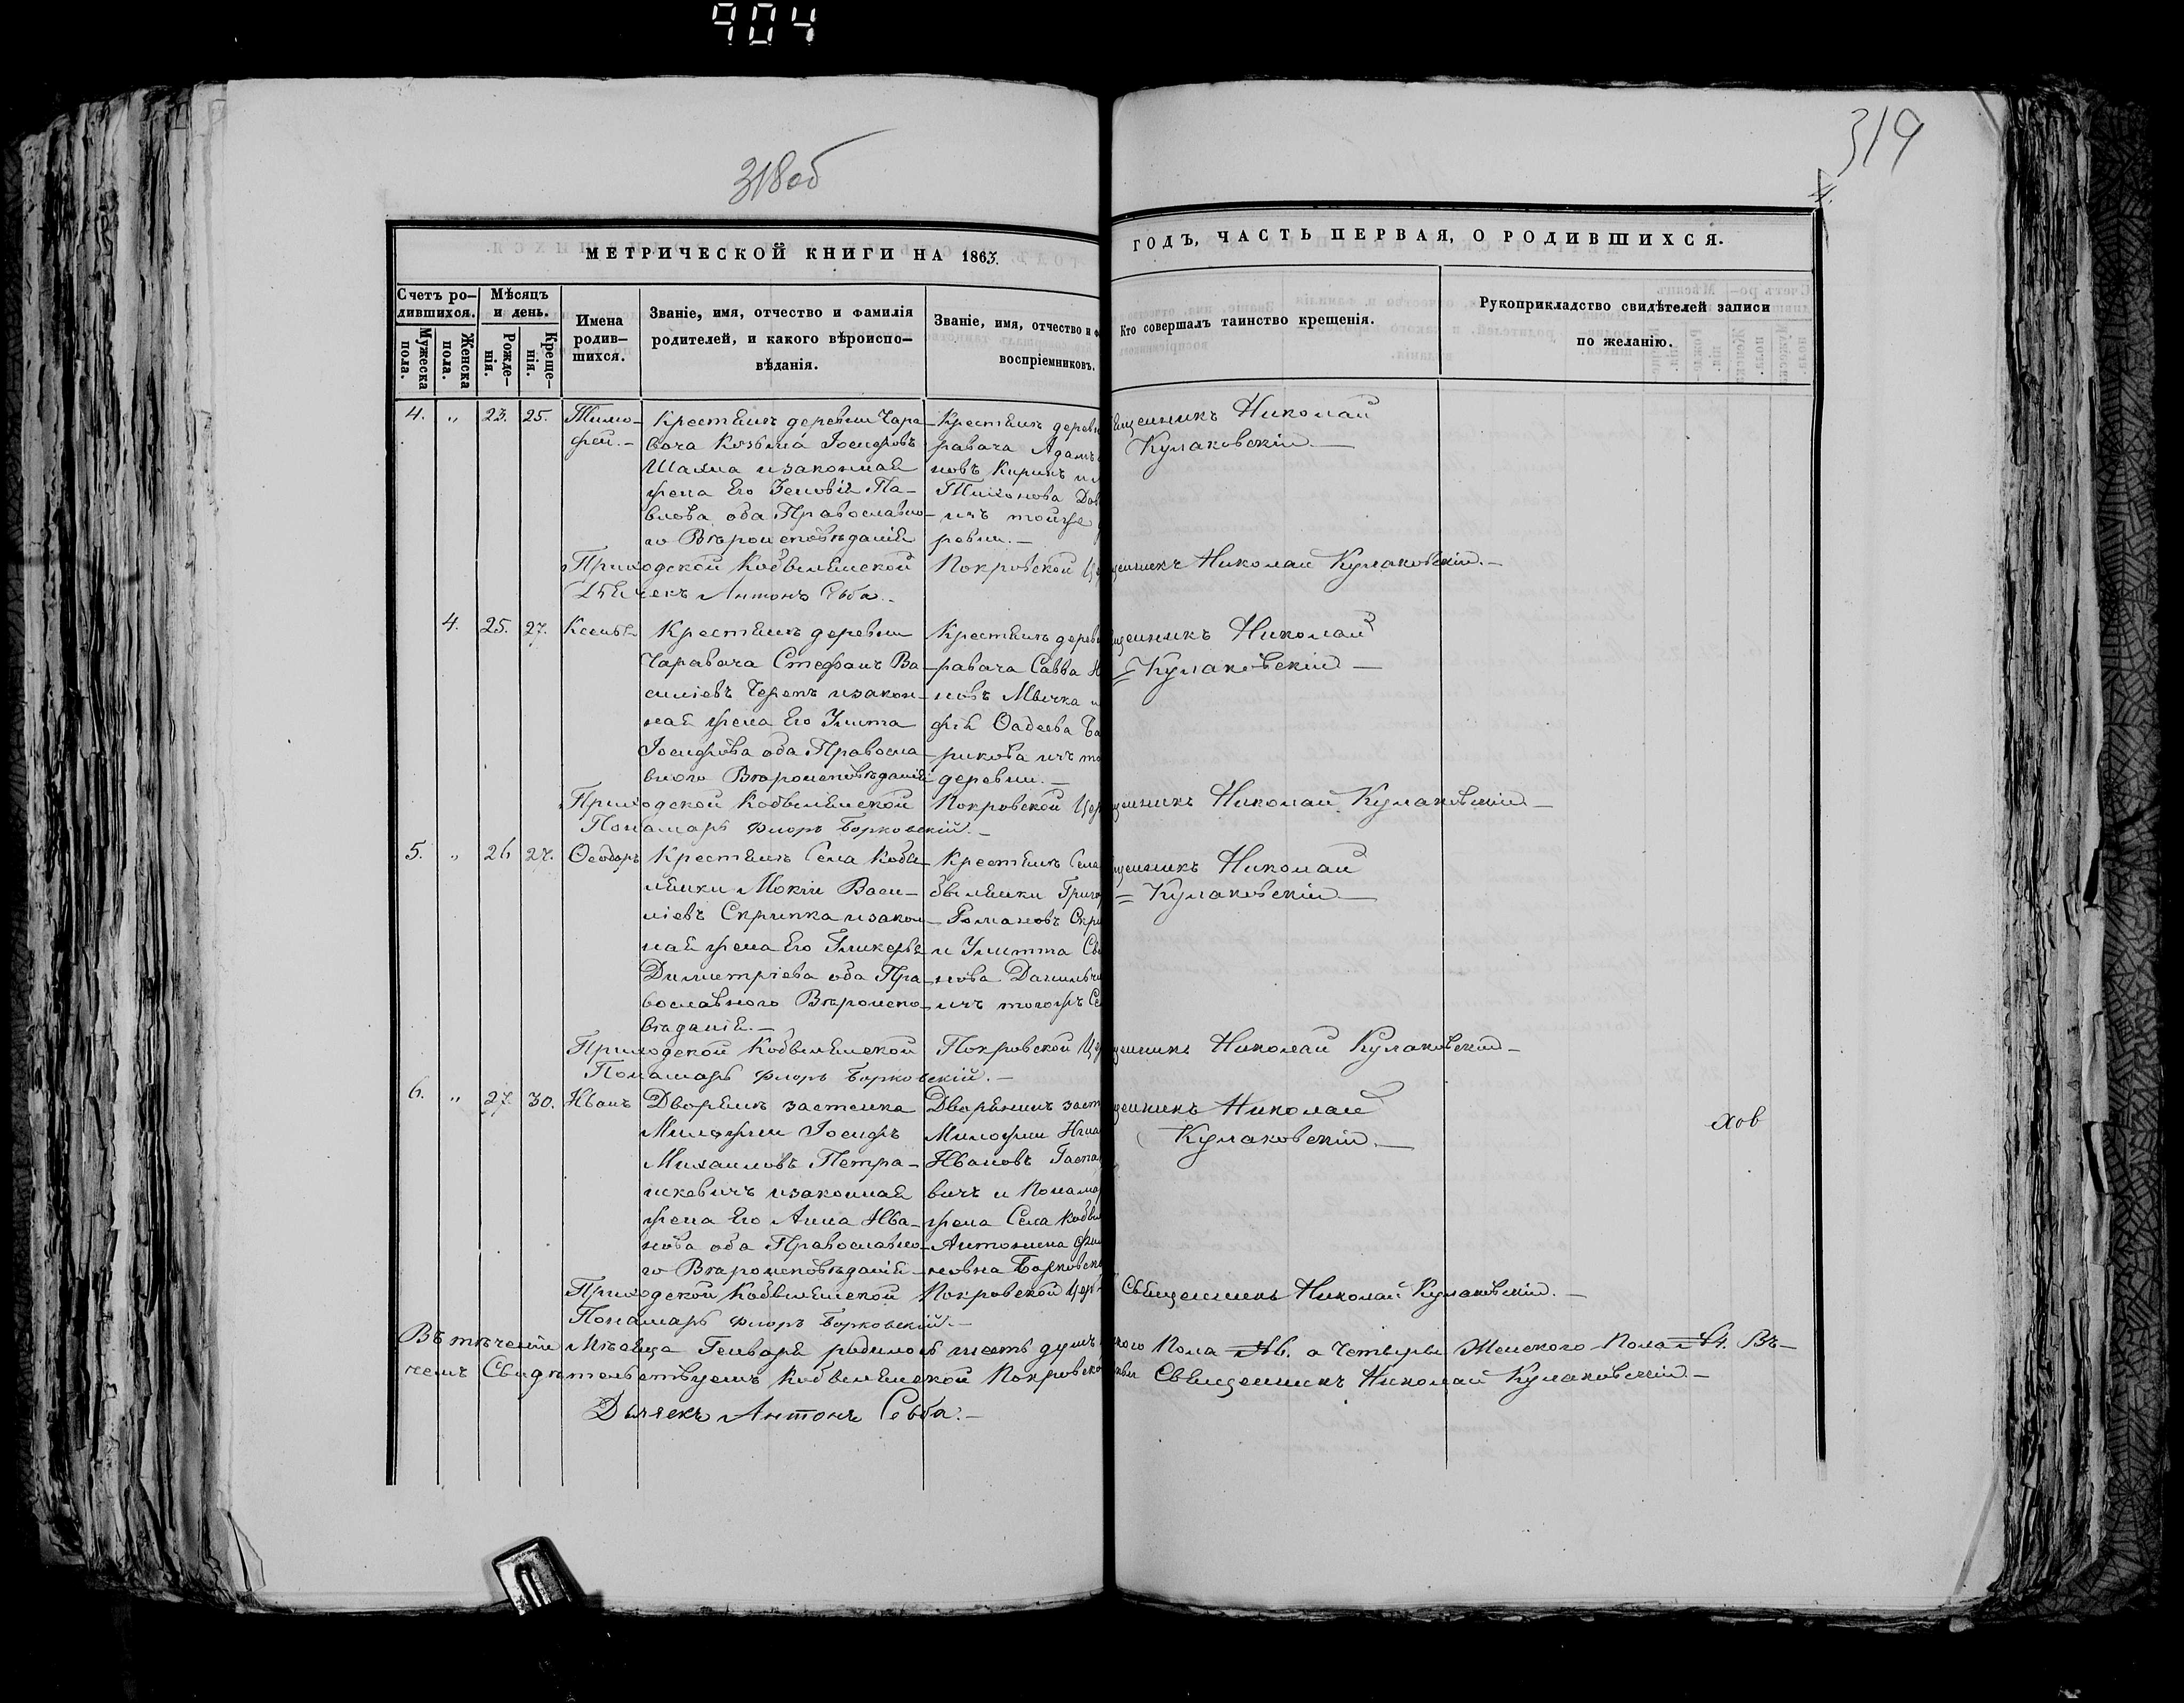 904
318об
319
4.
МЕТРИЧЕСКОЙ КНИГИ НА 1863.
ГОДЪ, ЧАСТЬ ПЕРВАЯ, О РОДИВШИХСЯ.
Счетъ ро-
дившихся.
Мужеска
пола.
Женска
пола.
Мѣсяцъ
и день.
Рожде-
нія.
Креще-
нія.
Имена
родив-
шихся.
Званіе, имя, отчество и фамилія
родителей, и какого вѣроиспо-
вѣданія.
Званіе, имя, отчество и
воспріемниковъ.
Кто совершалъ таинство крещенія.
Рукоприкладство свидѣтелей записи
по желанію.
4. „ 23. 25. Тимо-
фей.
Крестянъ деревни Чара-
вача Козьма Іосифовъ
Шахна и законная
жена Его Зеновія Па-
влова оба Православно-
го Вѣроисповѣданія
Крестянъ дерев
равача Адамъ
новъ Киринъ и
Тихонова
изъ тойже
ревни.
щенникъ Николай
Кулаковскій
Приходской Кобылянской Покровской Це щенникъ Николай Кулаковскій.
Дьячекъ Антонъ Себба.
4. 25. 27. Ксенія
Крестянъ деревни
Чаравача Стефанъ Ва-
силіевъ Черепъ и закон-
ная жена Его Улита
Іосифова оба Правосла-
вного Вѣроисповѣданія
Крестянъ дерев
равача Савва
новъ Мычка и
фія Фадеева Ба
рикова изъ то
деревни.
щенникъ Николай
Кулаковскій
Приходской Кобылянской Покровской Цер щенникъ Николай Кулаковскій
Понамарь Флоръ Борковскій.
5. „ 26 27. Феодоръ
Крестянъ Села Кобы-
лянки Мокій Васи-
ліевъ Скрипка и закон-
ная жена Его Гликерья
Димитріева оба Пра-
вославного Вѣроиспо-
вѣданія.
Крестянъ Села
былянки Григор
Романовъ Скри
и Улитта
нова Данильч
изъ тогожъ Се
щенникъ Николай
Кулаковскій
Приходской Кобылянской Покровской Це щенникъ Николай Кулаковскій
Понамарь Флоръ Борковскій.
6. „ 27. 30. Иванъ
Дворянъ застенка
Милофни Іосифъ
Михаиловъ Петра-
шкевичъ и законная
жена Его Анна Ива-
нова оба Православно-
го Вѣроисповѣданія
Дворянинъ заст
Милофни Игна
Ивановъ Гаспа
вичъ и Понама
жена Села Кобы
Антонина
новна Борковск
щенникъ Николай
Кулаковскій.
хов
Приходской Кобылянской Покровской Церк Священникъ Николай Кулаковскій.
Понамарь Флоръ Борковскій.
Въ теченіи Мѣсяца Генваря родилось шесть душъ ского Пола №6. а Четыры Женского Пола №4. Въ
чемъ Свидѣтельствуемъ Кобылянской Покровско Священникъ Николай Кулаковскій.
Дьячекъ Антонъ Себба.